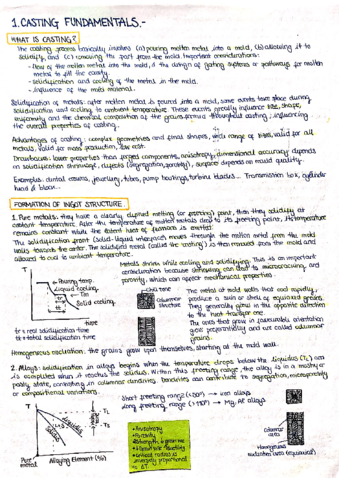 1. CASTING FUNDAMENTALS.-
WHAT IS CASTING?
The casting process basically involves (a) pouring molten metal into a mold, (b) allowing it to
solidify, and (c) removing the part from the mold. Important considerations:
- Flow of the molten metal into the mold, & the design of gating systems or pathways for molten
metal to fill the cavity.
- Solidification and cooling of the metal in the mold.
- Influence of the mold material.
Solidification of metals: after molten metal is poured into a mold, some events take place during
solidification and cooling to ambient temperature. These events greatly influence size, shape,
uniformity and the chemical composition of the grains formed throughout casting, influencing
the overall properties of casting.
Advantages of casting: complex geometries and final shapes, wide range of sizes, valid for all
metals, valid for mass production, low cost.
Drawbacks: lower properties than forged components, anisotropy, dimensional accuracy depends
on solidification shrinkage, defects (segregation, porosity), surface depends on mould quality.
Examples: dental crowns, jewellery, tubes, pump housings, turbine blades... Transmission box, cylinder
head & block...
FORMATION OF INGOT STRUCTURE
1. Pure metals: they have a clearly defined melting (or freezing) point, then they solidify at
constant temperature. After the temperature of molten metals drop to its freezing point, its temperature
remains constant while the latent heat of fusion is emitted.
The solidification front (solid-liquid interface) moves through the molten metal from the mold
walls towards the center. The solidified metal (called the casting) is then removed from the mold and
allowed to cool to ambient temperature.
Metals shrink while cooling and solidifying. This is an important
consideration because shrinking can lead to microcracking and
porosity, which can appear mechanical properties
T
Pouring temp.
Liquid cooling
Solid cooling
time
tr = real solidification time
tt = total solidification time
Columnar
structure
The metal at mold walls that cool rapidly,
produce a skin or shell of equiaxed grains.
They generally grow in the opposite direction
to the heat transfer one.
The ones that grow in favourable orientation
grow preferentially and are called columnar
grains.
Homogeneous nucleation: the grains grow upon themselves, starting at the mold wall.
2. Alloys: solidification in alloys begins when the temperature drops below the liquidus (TL) and
is completed when it reaches the solidus. Within this freezing range, the alloy is in a mushy or
pasty state, consisting in columnar dendrites. Dendrites can contribute to segregation, microporosity
or compositional variations.
T
TL
TS
Pure
metal
Alloying Element (%)
Short freezing range (<50º) → iron alloys
Long freezing range (>110º) → Mg, Al alloys
Anisotropy
Gravity
inversely proportional
to ΔT
Columnar
zone
Homogeneous
nucleation area (equiaxial)